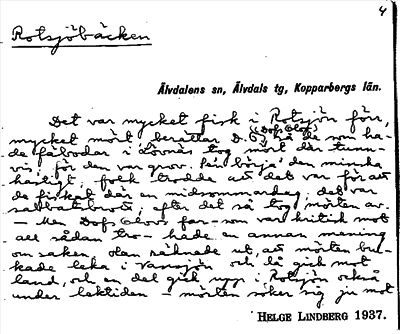 4
Rotsjöbäcken
Älvdalens sn, Älvdals tg, Kopparbergs län.
Det var mycket fisk i Rotsjön förr,
mycket mört berättar D.O. (Dofs Olof) så de som ha-
de fäbodar i Lövnäs tog mört där tunn-
vis, för den var grov. Så började den minska
hastigt, folk trodde att det var för att
de fisket där en midsommardag, det var
sabbatsbrott, efter det så tog mörten av.
— Men Dofs Olovs far – som var kritisk mot
all sådan tro – hade en annan mening
om saken. Han räknade ut, att mörten bru-
kade leka i Vansjön och då gick mot
land, och en del gick upp i Rotsjön också
under lektiden – mörten söker sig ju mot
HELGE LINDBERG 1937.